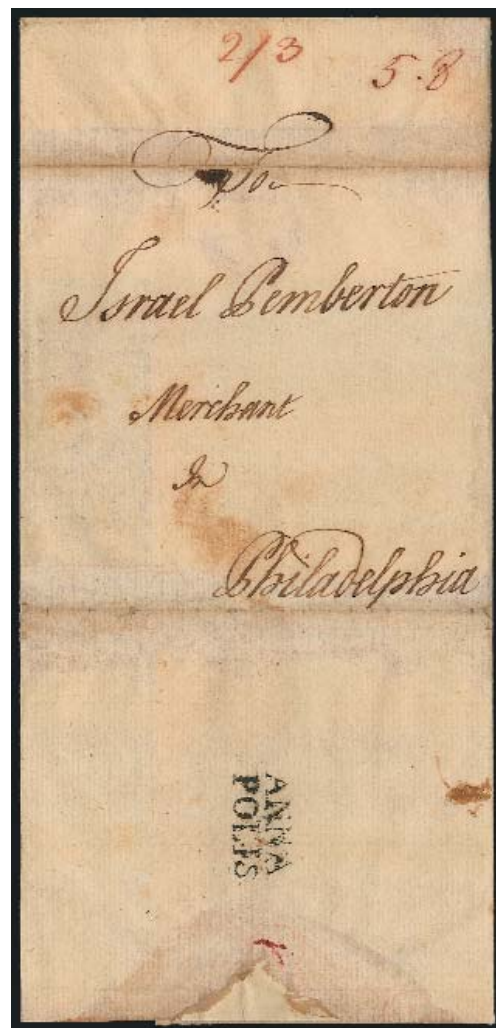 2/3
5.8
To
Israel Pemberton
Merchant
In
Philadelphia
ANNA
POLIS